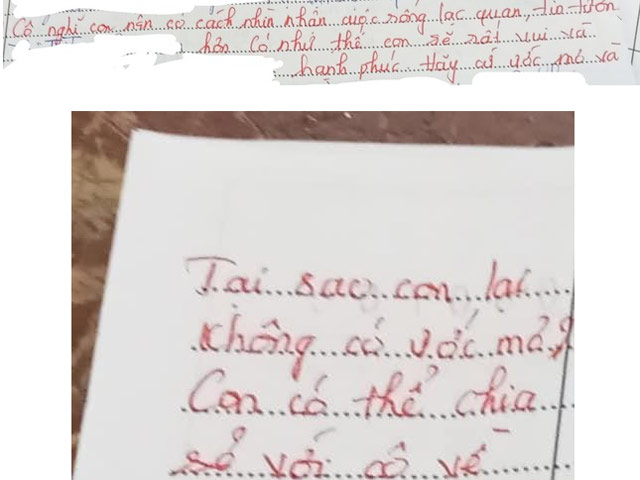 Cô nghĩ con nên có cách nhìn nhận cuộc sống lạc quan, tin tưởn
hơn. Có như thế con sẽ rất vui và
hạnh phúc. Hãy có ước mơ và
Tại sao con lại
không có ước mơ?
Con có thể chia
sẻ với cô về